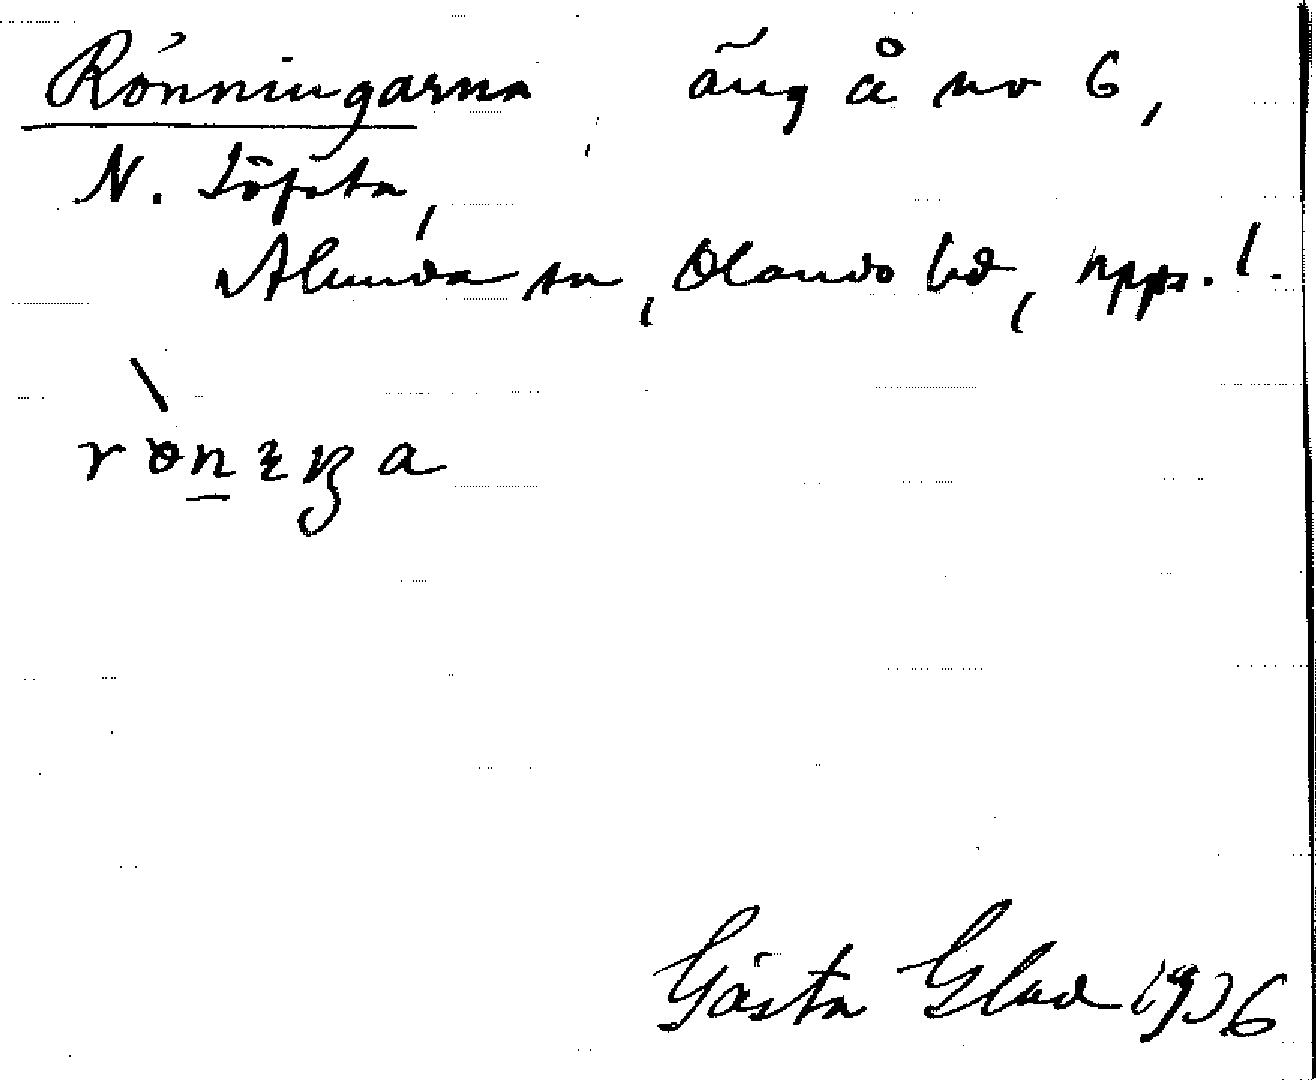 Rönningarna, äng å nr 6,
N. Löfsta,
Alunda sn, Olands hd, Upps. l.
Gösta Glad 1936